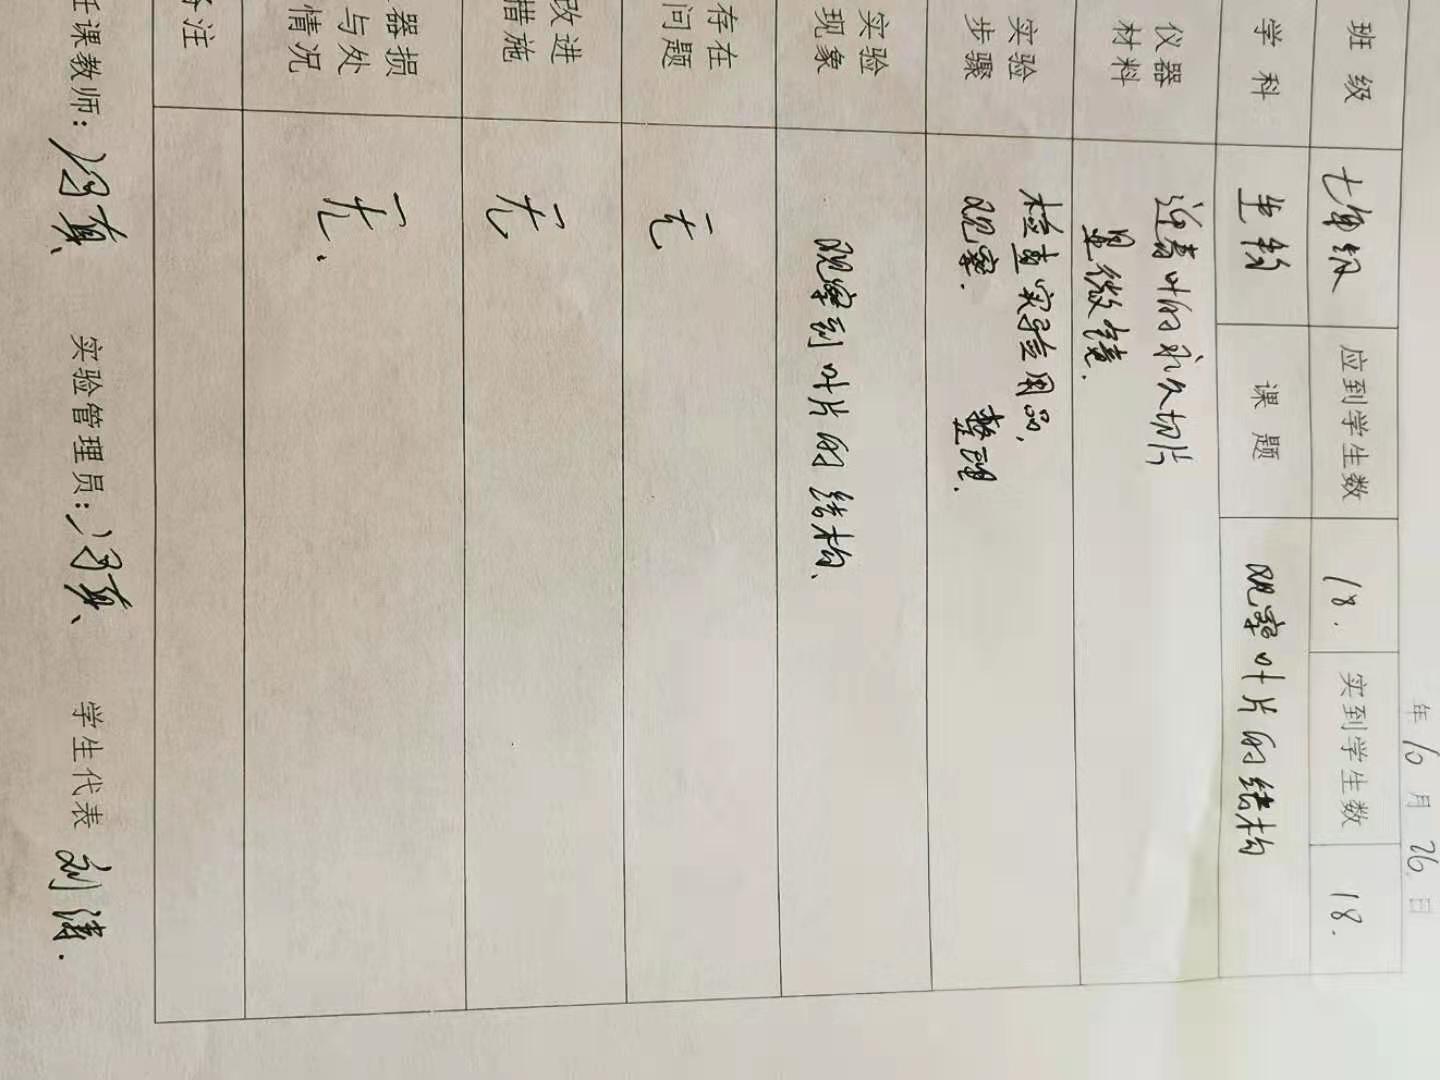 年10月26日
班级 七年级 应到学生数 18. 实到学生数 18.
学科 生物 课题 观察叶片的结构
仪器 迎春叶的永久切片
材料 显微镜.
实验 检查实验用品,
步骤 观察. 整理.
实验
现象 观察到叶片的结构、
存在
问题 无
改进
措施 无
器损
与处 无.
情况
注
任课教师: 冯真、 实验管理员: 冯真、 学生代表 刘涛.